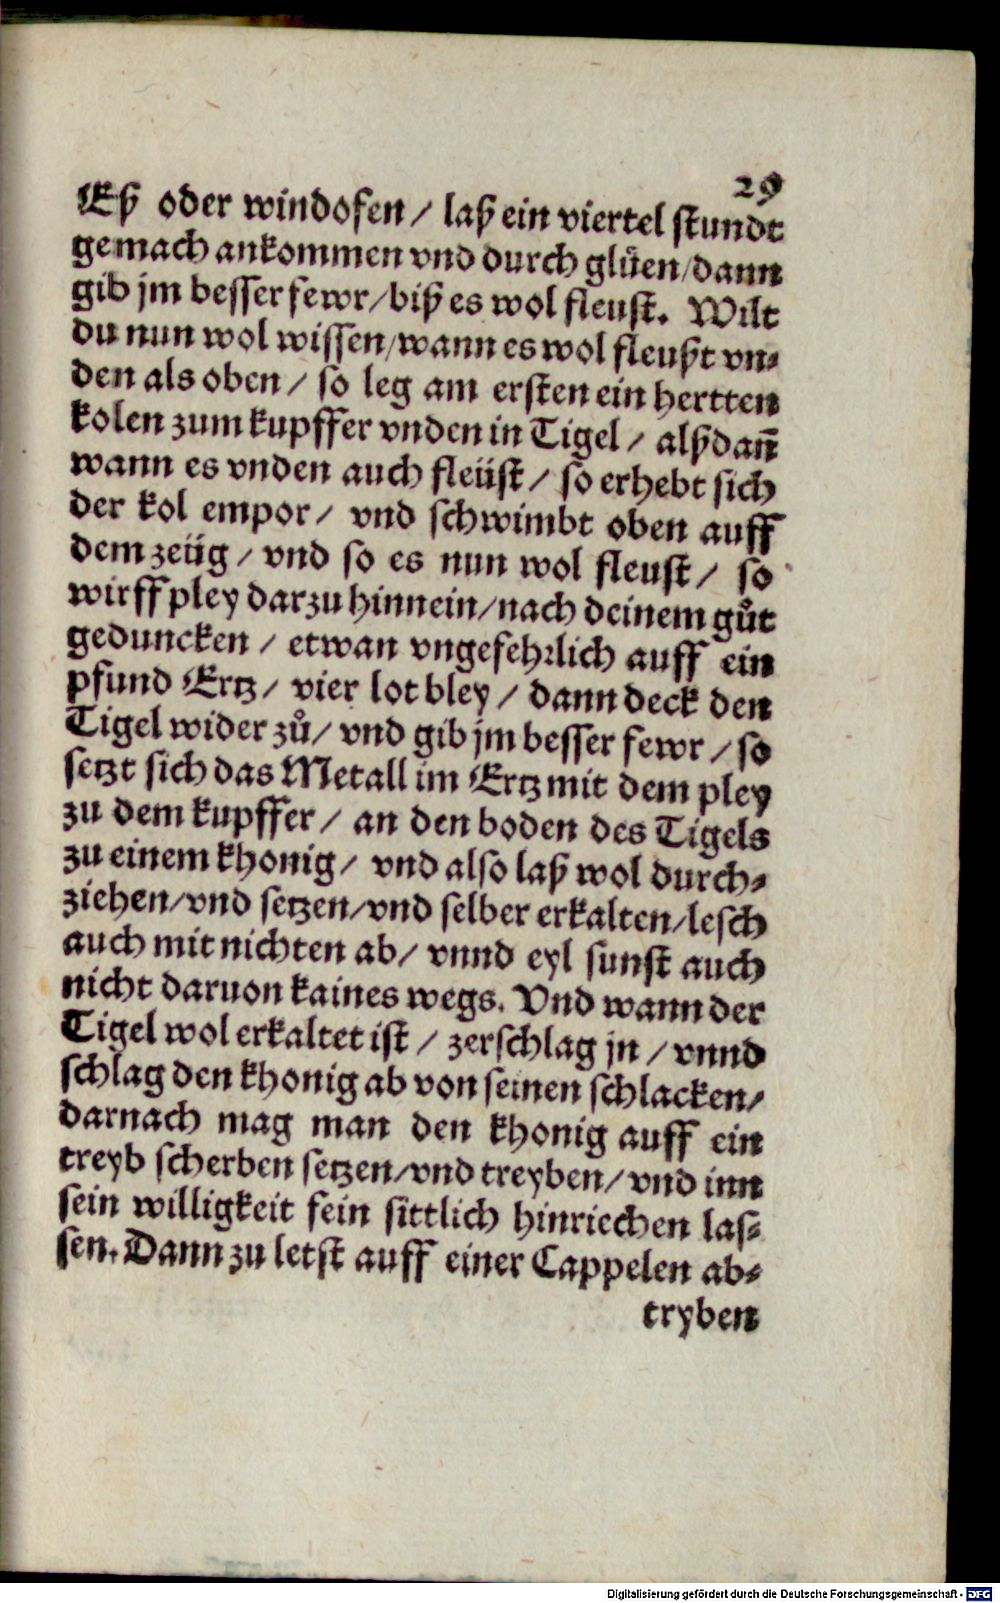 29
Eß oder windofen / laß ein viertel stundt
gemach ankommen vnd durch glüen/dann
gib jm besser fewr/biß es wol fleust. Wilt
du nun wol wissen/wann es wol fleußt vn⸗
den als oben / so leg am ersten ein hertten
kolen zum kupffer vnden in Tigel / alßdañ
wann es vnden auch fleüst / so erhebt sich
der kol empor / vnd schwimbt oben auff
dem zeüg / vnd so es nun wol fleust / so
wirff pley darzu hinnein/nach deinem gůt
geduncken / etwan vngefehrlich auff ein
pfund Ertz / vier lot bley / dann deck den
Tigel wider zů/ vnd gib jm besser fewr / so
setzt sich das Metall im Ertz mit dem pley
zu dem kupffer / an den boden des Tigels
zu einem khonig/ vnd also laß wol durch⸗
ziehen/vnd setzen/vnd selber erkalten/lesch
auch mit nichten ab/ vnnd eyl sunst auch
nicht daruon kaines wegs. Vnd wann der
Tigel wol erkaltet ist / zerschlag jn / vnnd
schlag den khonig ab von seinen schlacken/
darnach mag man den khonig auff ein
treyb scherben setzen/vnd treyben/ vnd inn
sein willigkeit fein sittlich hinriechen las⸗
sen. Dann zu letst auff einer Cappelen ab⸗
tryben
Digitalisierung gefördert durch die Deutsche Forschungsgemeinschaft - DFG